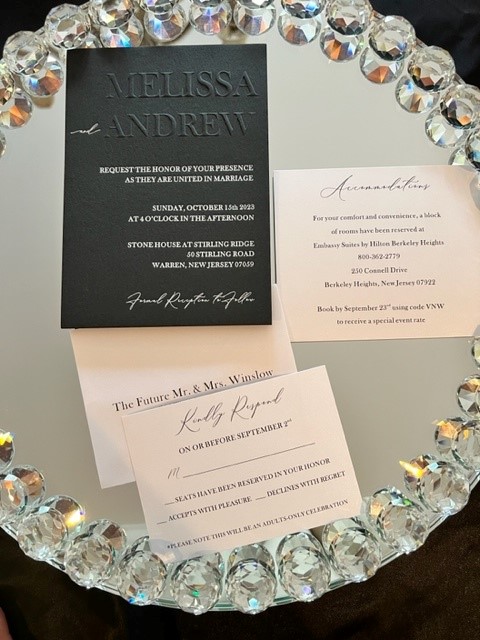 MELISSA
and ANDREW
REQUEST THE HONOR OF YOUR PRESENCE
AS THEY ARE UNITED IN MARRIAGE
SUNDAY, OCTOBER 15th 2023
AT 4 O'CLOCK IN THE AFTERNOON
STONE HOUSE AT STIRLING RIDGE
50 STIRLING ROAD
WARREN, NEW JERSEY 07059
Formal Reception to Follow
Accommodations
For your comfort and convenience, a block
of rooms have been reserved at
Embassy Suites by Hilton Berkeley Heights
800-362-2779
250 Connell Drive
Berkeley Heights, New Jersey 07922
Book by September 23rd using code VNW
to receive a special event rate
The Future Mr. & Mrs. Winslow
Kindly Respond
ON OR BEFORE SEPTEMBER 2nd
M
SEATS HAVE BEEN RESERVED IN YOUR HONOR
ACCEPTS WITH PLEASURE DECLINES WITH REGRET
*PLEASE NOTE THIS WILL BE AN ADULTS-ONLY CELEBRATION